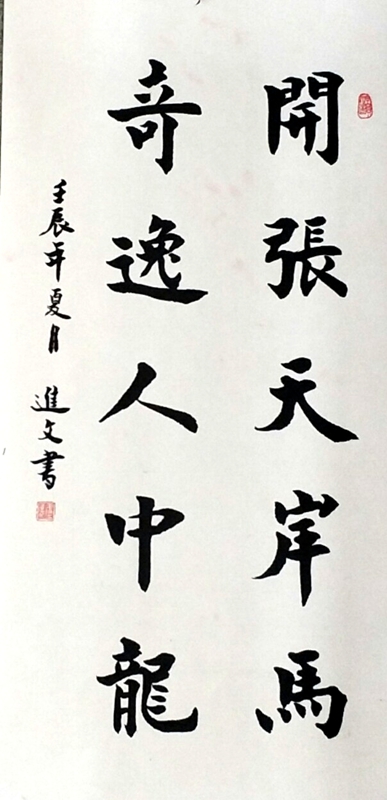 開張天岸馬
奇逸人中龍
壬辰年夏月 進文書